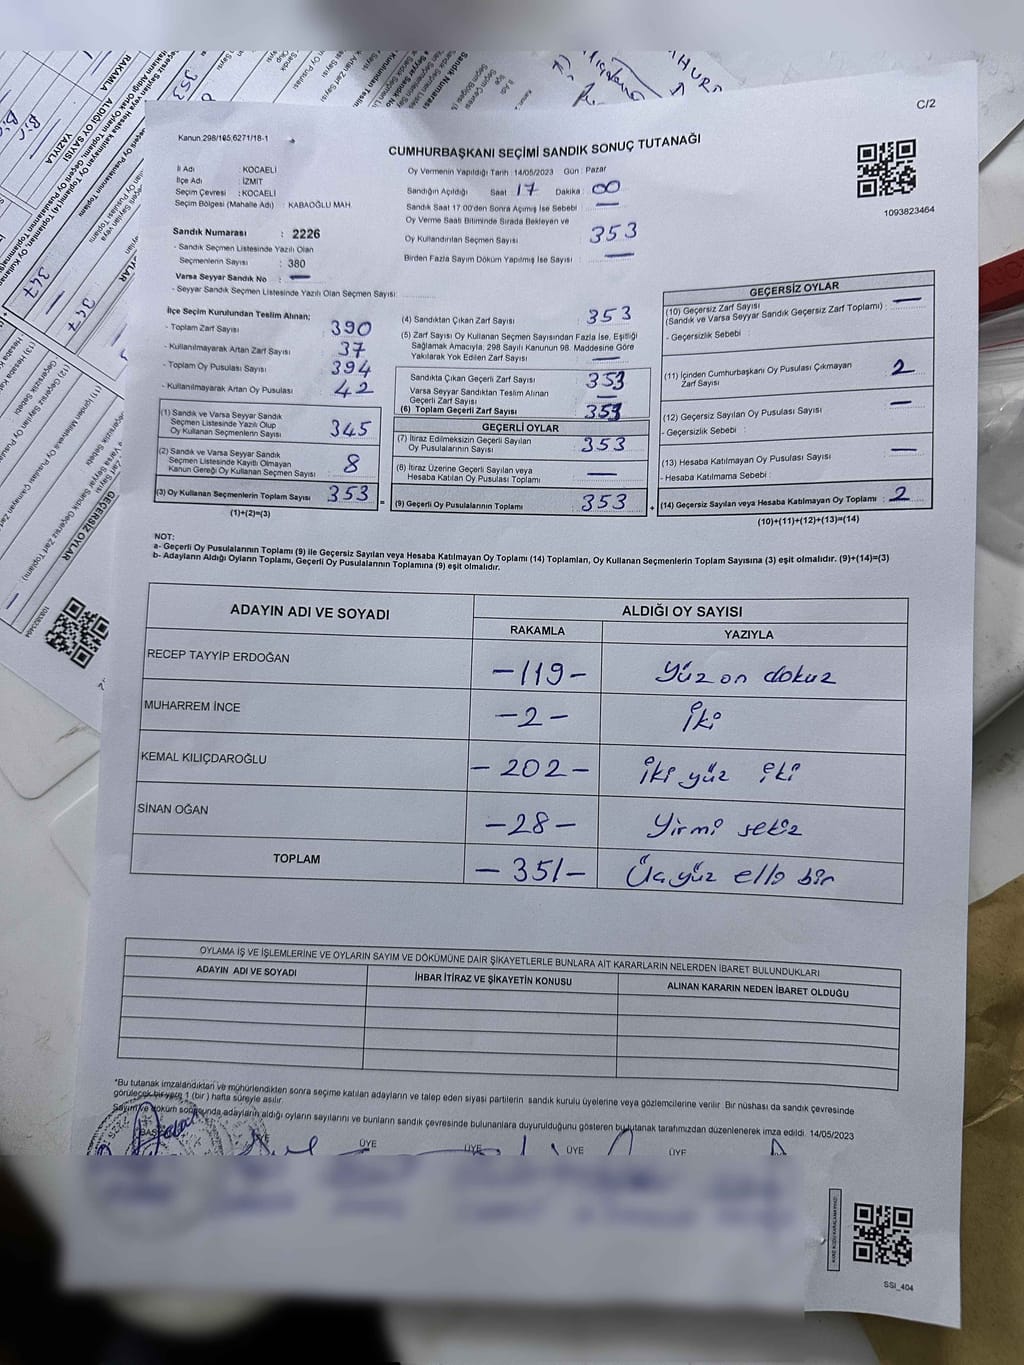 C/2
Kanun 298/105,6271/18-1
CUMHURBAŞKANI SEÇİMİ SANDIK SONUÇ TUTANAĞI
1093823464
İl Adı : KOCAELİ
İlçe Adı : İZMİT
Seçim Çevresi : KOCAELİ
Seçim Bölgesi (Mahalle Adı) : KABAOĞLU MAH.
Sandık Numarası : 2226
- Sandık Seçmen Listesinde Yazılı Olan
Seçmenlerin Sayısı : 380
Varsa Seyyar Sandık No : —
- Seyyar Sandık Seçmen Listesinde Yazılı Olan Seçmen Sayısı:
Oy Vermenin Yapıldığı Tarih : 14/05/2023 Gün : Pazar
Sandığın Açıldığı Saat : 17 Dakika : 00
Sandık Saat 17:00'den Sonra Açımış İse Sebebi : —
Oy Verme Saati Bitiminde Sırada Bekleyen ve
Oy Kullandırılan Seçmen Sayısı : 353
Birden Fazla Sayım Döküm Yapılmış İse Sayısı : —
İlçe Seçim Kurulundan Teslim Alınan;
- Toplam Zarf Sayısı : 390
- Kullanılmayarak Artan Zarf Sayısı : 37
- Toplam Oy Pusulası Sayısı : 394
- Kullanılmayarak Artan Oy Pusulası : 42
(1) Sandık ve Varsa Seyyar Sandık
Seçmen Listesinde Yazılı Olup
Oy Kullanan Seçmenlerin Sayısı : 345
(2) Sandık ve Varsa Seyyar Sandık
Seçmen Listesinde Kayıtlı Olmayan
Kanun Gereği Oy Kullanan Seçmen Sayısı : 8
(3) Oy Kullanan Seçmenlerin Toplam Sayısı : 353 =
(1)+(2)=(3)
(4) Sandıktan Çıkan Zarf Sayısı : 353
(5) Zarf Sayısı Oy Kullanan Seçmen Sayısından Fazla İse, Eşitliği
Sağlamak Amacıyla, 298 Sayılı Kanunun 98. Maddesine Göre
Yakılarak Yok Edilen Zarf Sayısı : —
Sandıkta Çıkan Geçerli Zarf Sayısı : 353
Varsa Seyyar Sandıktan Teslim Alınan
Geçerli Zarf Sayısı : —
(6) Toplam Geçerli Zarf Sayısı : 353
GEÇERLİ OYLAR
(7) İtiraz Edilmeksizin Geçerli Sayılan
Oy Pusulalarının Sayısı : 353
(8) İtiraz Üzerine Geçerli Sayılan veya
Hesaba Katılan Oy Pusulası Toplamı : —
(9) Geçerli Oy Pusulalarının Toplamı : 353 +
GEÇERSİZ OYLAR
(10) Geçersiz Zarf Sayısı
(Sandık ve Varsa Seyyar Sandık Geçersiz Zarf Toplamı) : —
- Geçersizlik Sebebi :
(11) İçinden Cumhurbaşkanı Oy Pusulası Çıkmayan
Zarf Sayısı : 2
(12) Geçersiz Sayılan Oy Pusulası Sayısı : —
- Geçersizlik Sebebi :
(13) Hesaba Katılmayan Oy Pusulası Sayısı : —
- Hesaba Katılmama Sebebi :
(14) Geçersiz Sayılan veya Hesaba Katılmayan Oy Toplamı : 2
(10)+(11)+(12)+(13)=(14)
NOT:
a- Geçerli Oy Pusulalarının Toplamı (9) ile Geçersiz Sayılan veya Hesaba Katılmayan Oy Toplamı (14) Toplamları, Oy Kullanan Seçmenlerin Toplam Sayısına (3) eşit olmalıdır. (9)+(14)=(3)
b- Adayların Aldığı Oyların Toplamı, Geçerli Oy Pusulalarının Toplamına (9) eşit olmalıdır.
ADAYIN ADI VE SOYADI ALDIĞI OY SAYISI
RAKAMLA YAZIYLA
RECEP TAYYİP ERDOĞAN -119- Yüz on dokuz
MUHARREM İNCE -2- İki
KEMAL KILIÇDAROĞLU -202- iki yüz iki
SİNAN OĞAN -28- Yirmi sekiz
TOPLAM -351- Üç yüz elli bir
OYLAMA İŞ VE İŞLEMLERİNE VE OYLARIN SAYIM VE DÖKÜMÜNE DAİR ŞİKAYETLERLE BUNLARA AİT KARARLARIN NELERDEN İBARET BULUNDUKLARI
ADAYIN ADI VE SOYADI İHBAR İTİRAZ VE ŞİKAYETİN KONUSU ALINAN KARARIN NEDEN İBARET OLDUĞU
*Bu tutanak imzalandıktan ve mühürlendikten sonra seçime katılan adayların ve talep eden siyasi partilerin sandık kurulu üyelerine veya gözlemcilerine verilir. Bir nüshası da sandık çevresinde
görülecek bir yere 1 (bir) hafta süreyle asılır.
Sayım ve döküm sonucunda adayların aldığı oyların sayılarını ve bunların sandık çevresinde bulunanlara duyurulduğunu gösteren bu tutanak tarafımızdan düzenlenerek imza edildi. 14/05/2023
BAŞKAN ÜYE ÜYE ÜYE ÜYE ÜYE
SSI_404